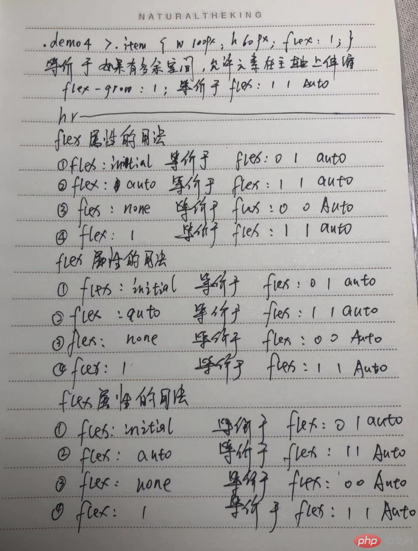 NATURALTHEKING
.demo4 > .item { w 100px; h 60px; flex: 1; }
等价于如果有多余空间,允许元素在主轴上伸缩
flex-grow: 1; 等价于 flex: 1 1 Auto
hr
flex 属性的用法
① flex: initial 等价于 flex: 0 1 auto
② flex: auto 等价于 flex: 1 1 auto
③ flex: none 等价于 flex: 0 0 Auto
④ flex: 1 等价于 flex: 1 1 auto
flex 属性的用法
① flex: initial 等价于 flex: 0 1 auto
② flex: auto 等价于 flex: 1 1 auto
③ flex: none 等价于 flex: 0 0 Auto
④ flex: 1 等价于 flex: 1 1 Auto
flex 属性的用法
① flex: initial 等价于 flex: 0 1 auto
② flex: auto 等价于 flex: 1 1 Auto
③ flex: none 等价于 flex: 0 0 Auto
④ flex: 1 等价于 flex: 1 1 Auto
php